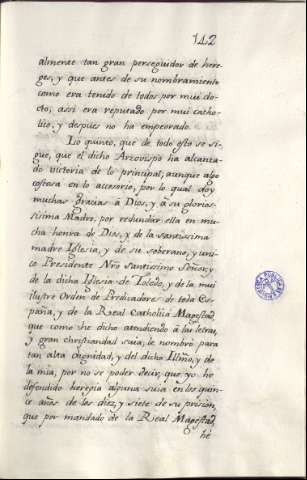 142
almente tan gran perseguidor de here-
ges, y que antes de su nombramiento
como era tenido de todos por mui do-
cto, assi era reputado por mui catho-
lico, y despues no ha empeorado.
Lo quinto, que de todo esto se si-
gue, que el dicho Arzovispo ha alcanta-
do vitoria de lo principal; aunque algo
costosa en lo accesorio, por lo qual doy
muchas gracias á Dios, y á su glorios-
sísima Madre, por redundar ella en mu-
cha honra de Dios, y de la santissima
madre Iglesia, y de su soberano, y uni-
co Presidente Nrô Santissimo Señor, y
de la dicha Iglesia de Toledo, y de la mui
ilustre Orden de Predicadores de toda Es-
paña, y de la Real Catholica Magestad,
que como he dicho atendiendo á las letras,
y gran christiandad suia, le nombró para
tan alta dignidad, y del dicho Illmô, y de
la mia, por no se poder decir, que yo he
defendido heregia alguna suia en los quin-
ce años de los diez, y siete de su prision,
que por mandado de la Real Magestad,
he